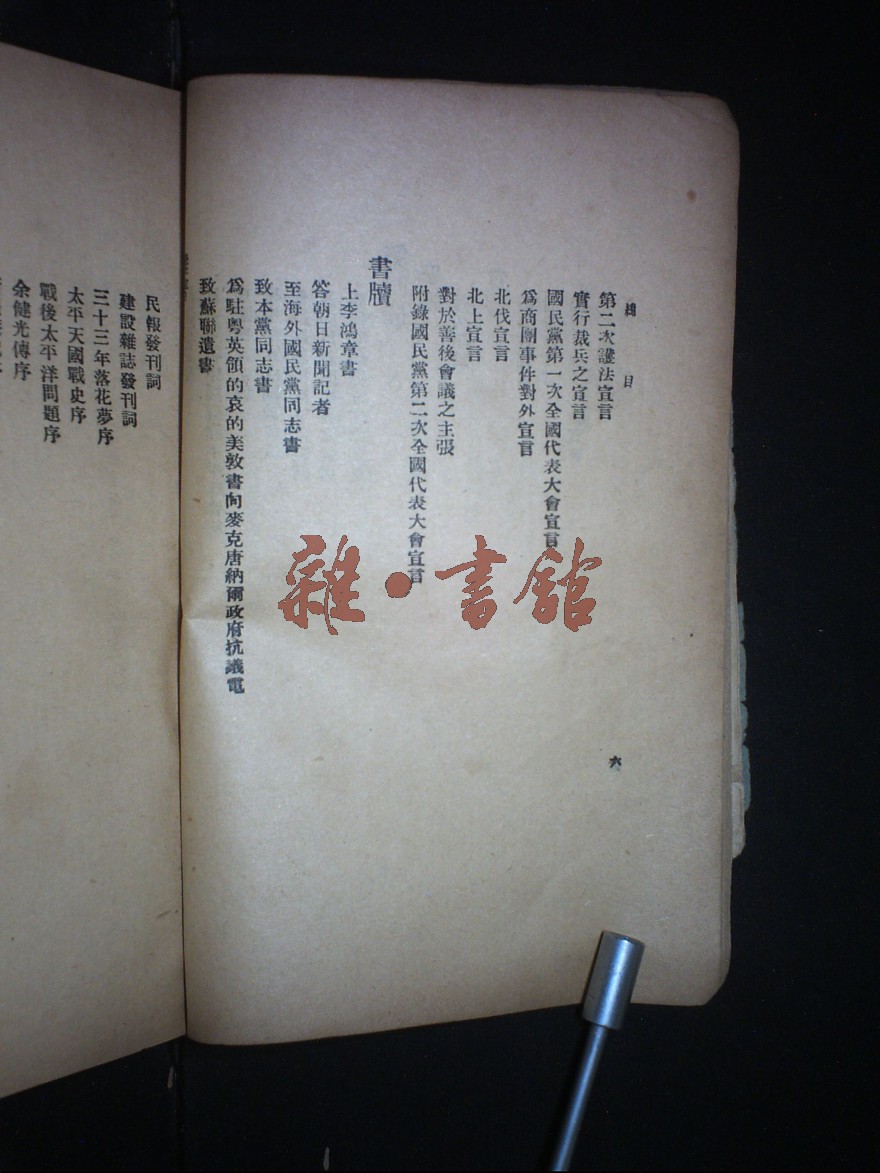 總目
第二次護法宣言
實行裁兵之宣言
國民黨第一次全國代表大會宣言
爲商團事件對外宣言
北伐宣言
北上宣言
對於善後會議之主張
附錄國民黨第二次全國代表大會宣言
書牘
上李鴻章書
答朝日新聞記者
至海外國民黨同志書
致本黨同志書
爲駐粤英領的哀的美敦書向麥克唐納爾政府抗議電
致蘇聯遺書
六
民報發刊詞
建設雜誌發刊詞
三十三年落花夢序
太平天國戰史序
戰後太平洋問題序
余健光傳序
雜·書館